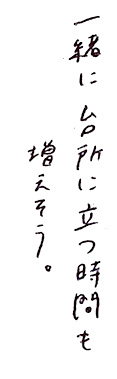 一緒に台所に立つ時間も
増えそう。